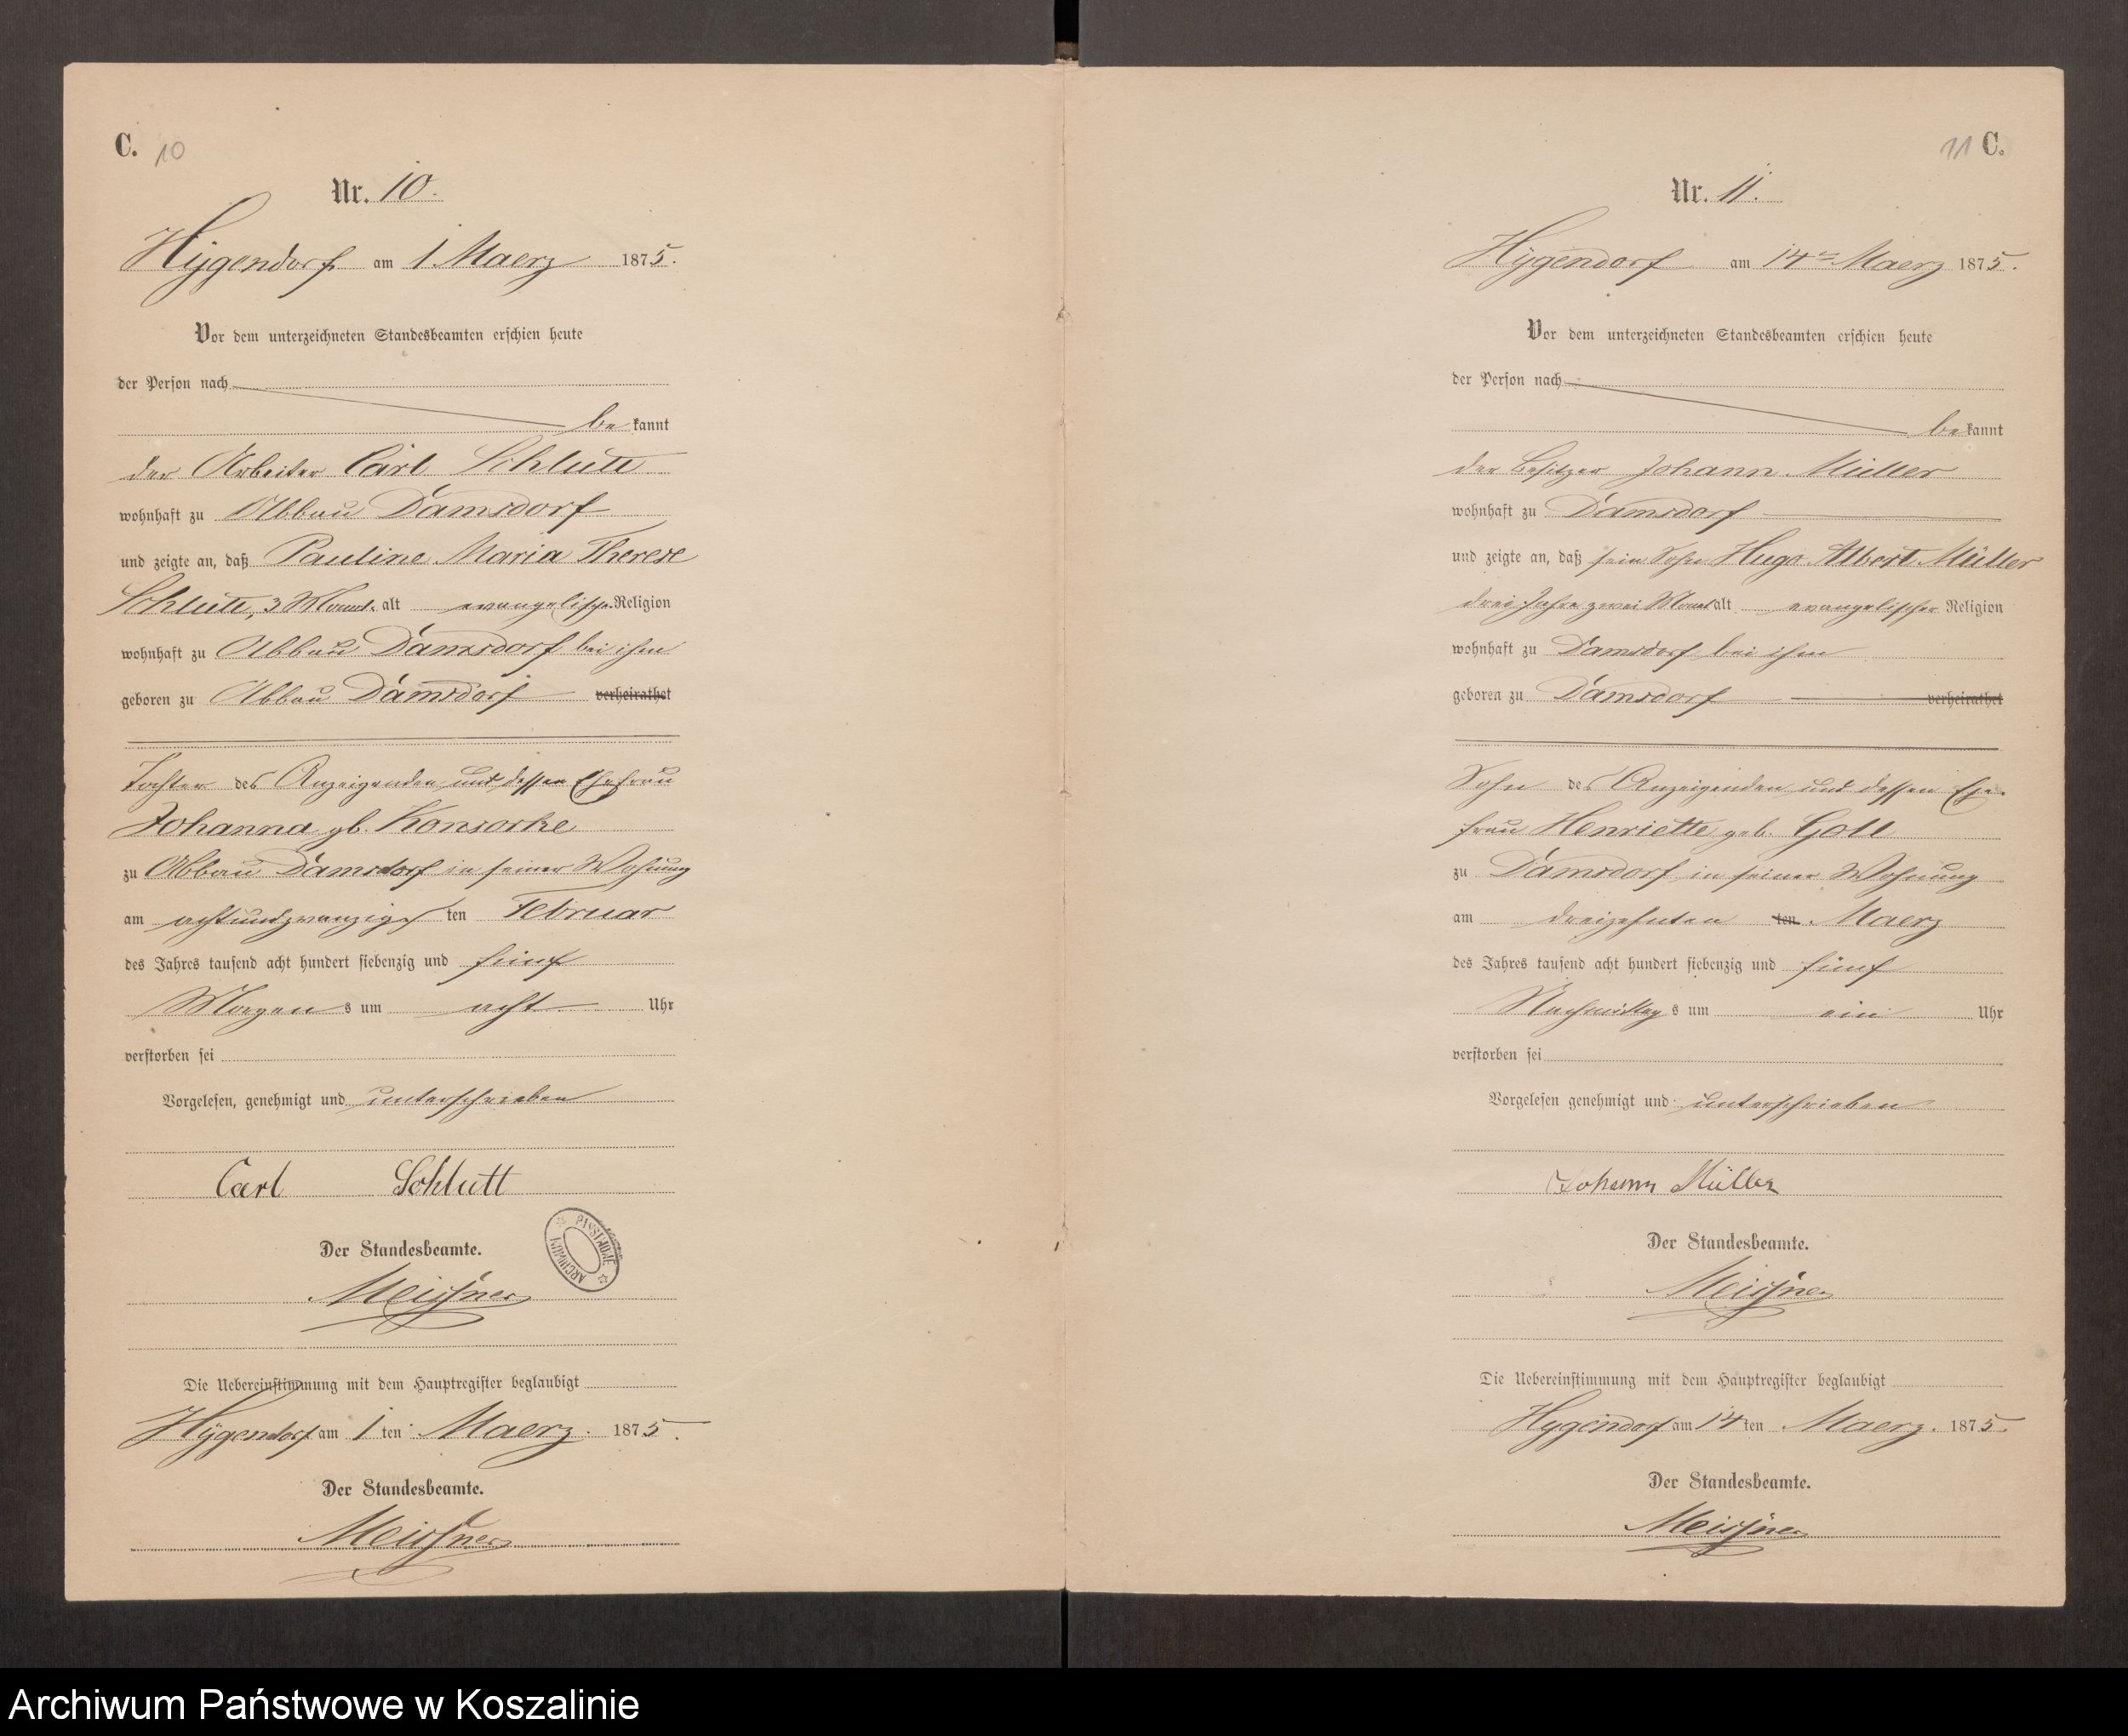 C. 10
Nr. 10.
Hygendorf am 1 Maerz 1875.
Vor dem unterzeichneten Standesbeamten erschien heute
der Person nach
be kannt
der Arbeiter Carl Schlutt
wohnhaft zu Abbau Damsdorf
und zeigte an, daß Pauline Maria Therese
Schlutt, 3 Monat alt evangelischer Religion
wohnhaft zu Abbau Damsdorf bei ihm
geboren zu Abbau Damsdorf verheirathet
Tochter des Anzeigenden und dessen Ehefrau
Johanna gb. Konsorke
zu Abbau Damsdorf in seiner Wohnung
am achtundzwanzigs ten Februar
des Jahres tausend acht hundert siebenzig und fünf
Morgen s um acht Uhr
verstorben sei
Vorgelesen, genehmigt und unterschrieben
Carl Schlutt
Der Standesbeamte.
Meissner
ARCHIWUM PAŃSTWOWE
Die Uebereinstimmung mit dem Hauptregister beglaubigt
Hygendorf am 1 ten Maerz. 1875.
Der Standesbeamte.
Meissner
11 C.
Nr. 11.
Hygendorf am 14ten Maerz 1875.
Vor dem unterzeichneten Standesbeamten erschien heute
der Person nach
be kannt
der Besitzer Johann Müller
wohnhaft zu Damsdorf
und zeigte an, daß sein Sohn Hugo Albert Müller
drei Jahre zwei Monat alt evangelischer Religion
wohnhaft zu Damsdorf bei ihm
geboren zu Damsdorf verheirathet
Sohn des Anzeigenden und dessen Ehe-
frau Henriette geb. Goll
zu Damsdorf in seiner Wohnung
am dreizehnten ten Maerz
des Jahres tausend acht hundert siebenzig und fünf
Nachmittag s um ein Uhr
verstorben sei
Vorgelesen genehmigt und unterschrieben
Johann Müller
Der Standesbeamte.
Meissner
Die Uebereinstimmung mit dem Hauptregister beglaubigt
Hygendorf am 14 ten Maerz. 1875.
Der Standesbeamte.
Meissner
Archiwum Państwowe w Koszalinie